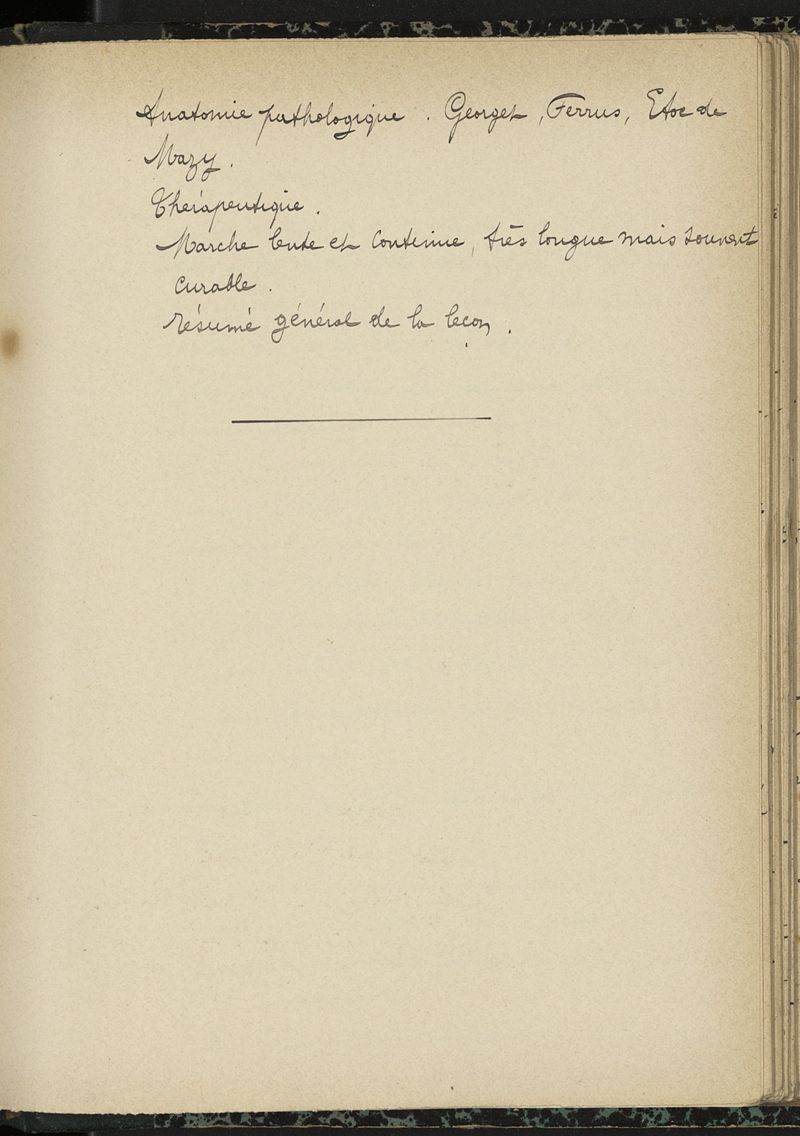 Anatomie pathologique. Georget, Ferrus, Etoc de
Mazy.
Thérapeutique.
Marche lente et continue, très longue mais souvent
curable.
Résumé général de la leçon.